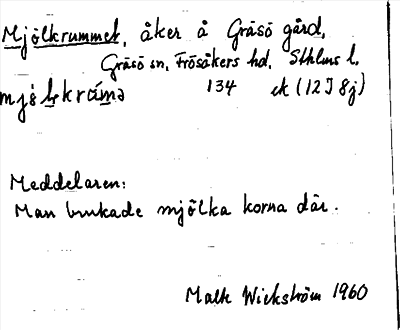 Mjölkrummet, åker å Gräsö gård,
Gräsö sn, Frösåkers hd, Sthlms l.
134 ek (12I 8j)
Meddelaren:
Man brukade mjölka korna där.
Wickström 1960